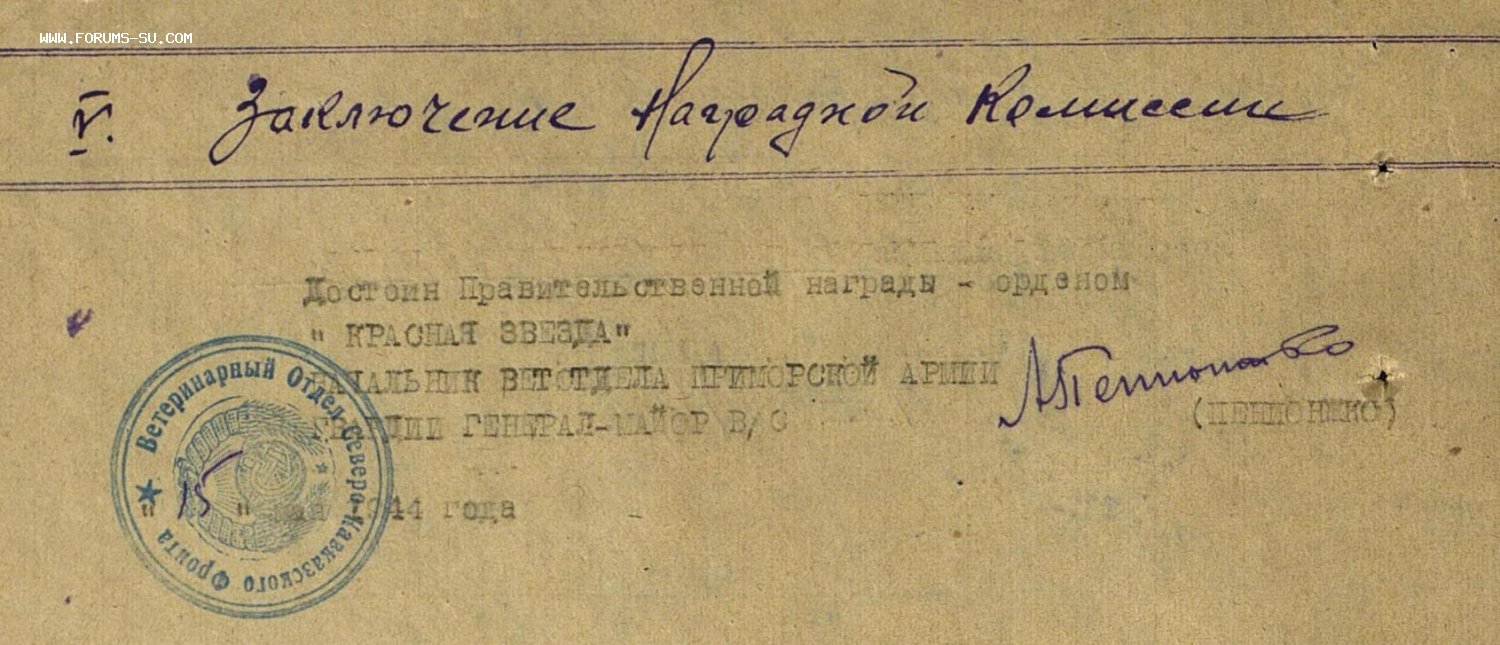 WWW.FORUMS-SU.COM
V. Заключение Наградной Комиссии
Достоин Правительственной награды - орденом
" КРАСНАЯ ЗВЕЗДА"
НАЧАЛЬНИК ВЕТОТДЕЛА ПРИМОРСКОЙ АРМИИ
ГЕНЕРАЛ-МАЙОР В/С
Ветеринарный Отдел Северо-Кавказского Фронта
" 15 " 1944 года